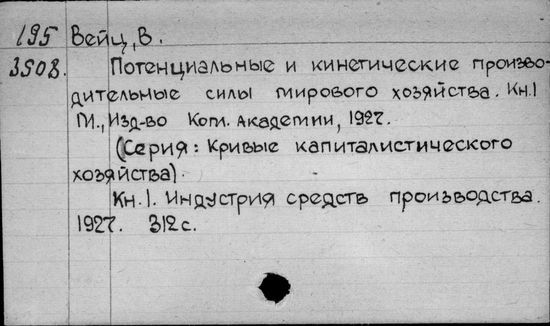 195 Вейц, В.
3508. Потенциальные и кинетические произво-
дительные силы мирового хозяйства. Кн.1
М., Изд-во Ком. Академии, 1927.
(Серия: Кривые капиталистического
хозяйства).
Кн.1. Индустрия средств производства.
1927. 312 с.